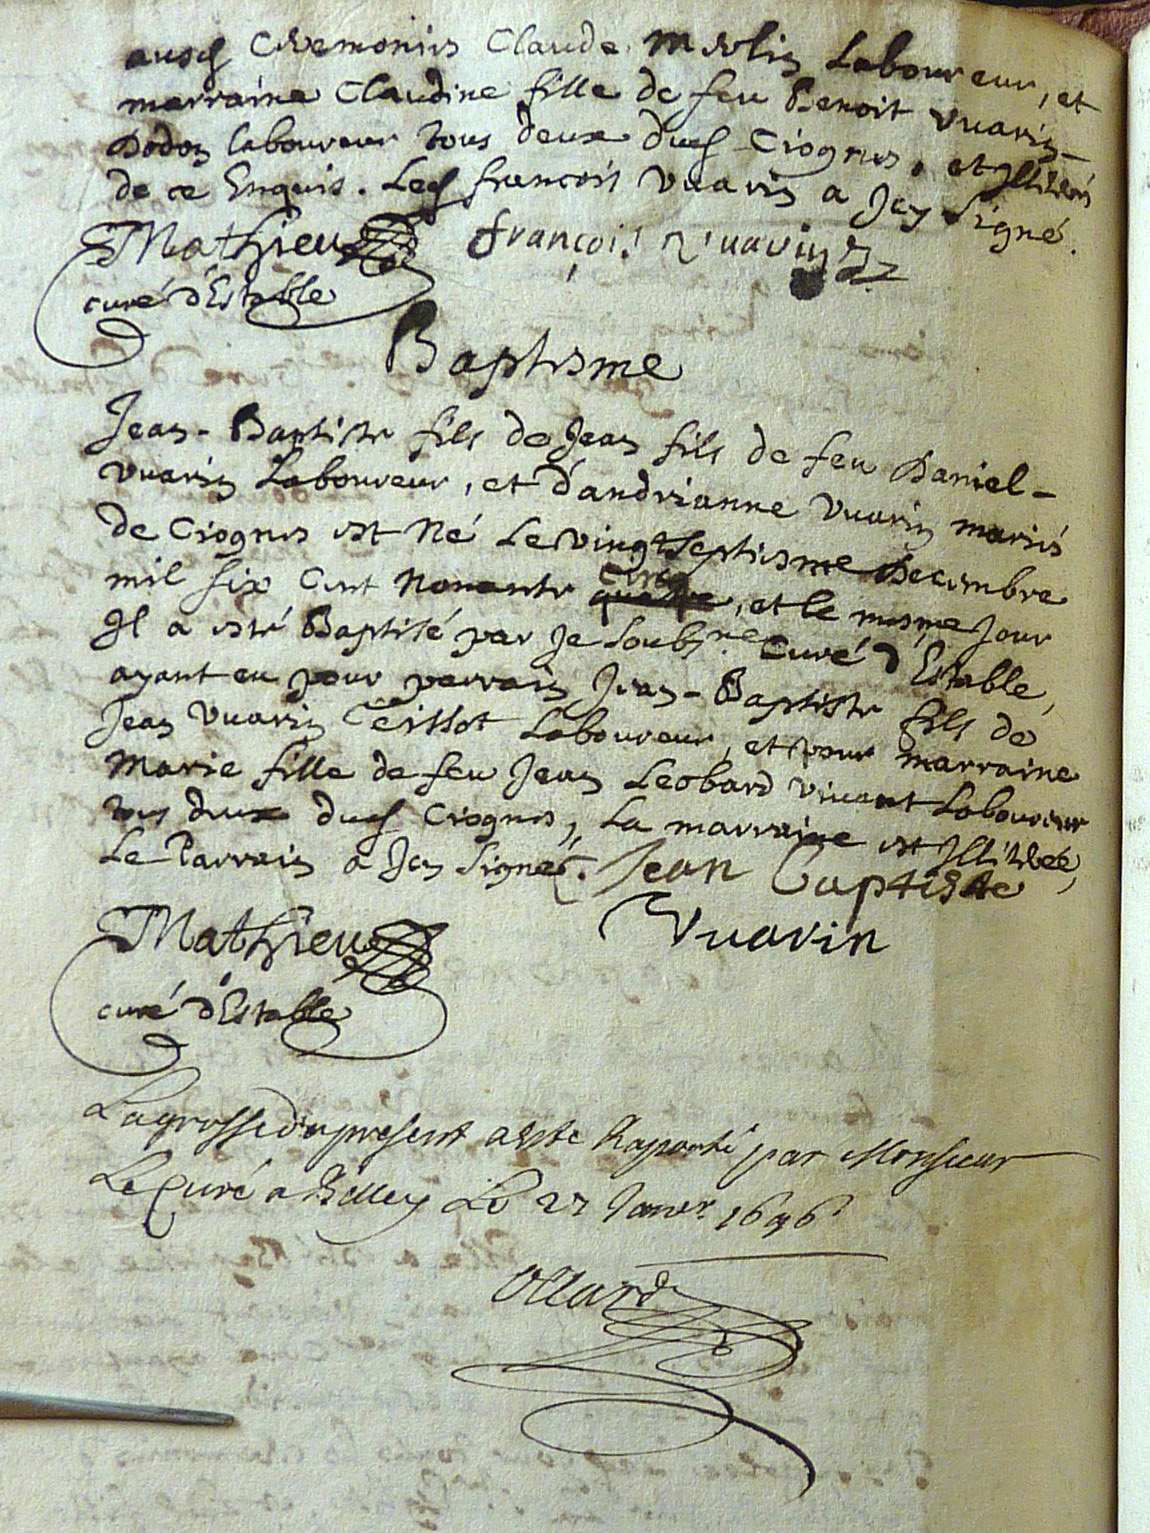 ausd Ceremonies Claude Merlin Laboureur, et
marraine Claudine fille de feu Benoit vuarin
Dodon laboureur tous deux dud Crognes, et Illiterés
de ce Enquis. Led françois vuarin a Icy signé.
Mathieu françois vuarin
curé d'Estable
Baptesme
Jean-Baptiste fils de Jean fils de feu Daniel-
vuarin Laboureur, et d'andrianne vuarin mariés
de Crognes est Né Le vingt septiesme Decembre
mil six Cent Nonante cinq quatre, et le mesme Jour
Il a esté Baptisé par Je soubs.né Curé d'Estable,
ayant eu pour parrain Jean-Baptiste fils de
Jean vuarin Teissot Laboureur, et pour marraine
Marie fille de feu Jean Leobard vivant Laboureur
tous deux dud Crognes, La marraine est Illiterée,
Le Parrain a Icy signé. Jean Baptiste
Mathieu Vuarin
curé d'Estable
Lagrosse du present a esté Raporté par Monsieur
Le Curé a Belley Le 27 Janvr. 1696